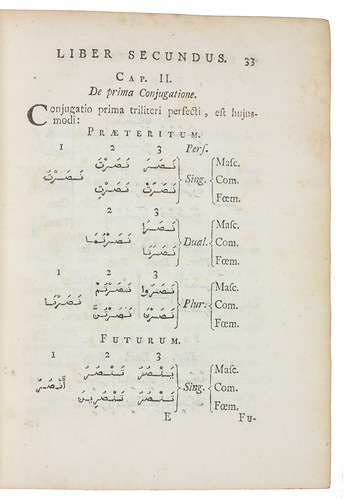 LIBER SECUNDUS. 33
CAP. II.
De prima Conjugatione.
Conjugatio prima triliteri perfecti, est hujus-
modi:
PRÆTERITUM.
1 2 3 Pers.
نَصَرَ نَصَرْتَ
Masc.
نَصَرْتُ
Sing. Com.
نَصَرَتْ نَصَرْتِ
Fœm.
2 3
نَصَرَا
Masc.
نَصَرْتُمَا
Dual. Com.
نَصَرَتَا
Fœm.
1 2 3
نَصَرُوا نَصَرْتُمْ
Masc.
نَصَرْنَا
Plur. Com.
نَصَرْنَ نَصَرْتُنَّ
Fœm.
FUTURUM.
1 2 3
يَنْصُرُ تَنْصُرُ
Masc.
أَنْصُرُ
Sing. Com.
تَنْصُرُ تَنْصُرِينَ
Fœm.
E Fu-